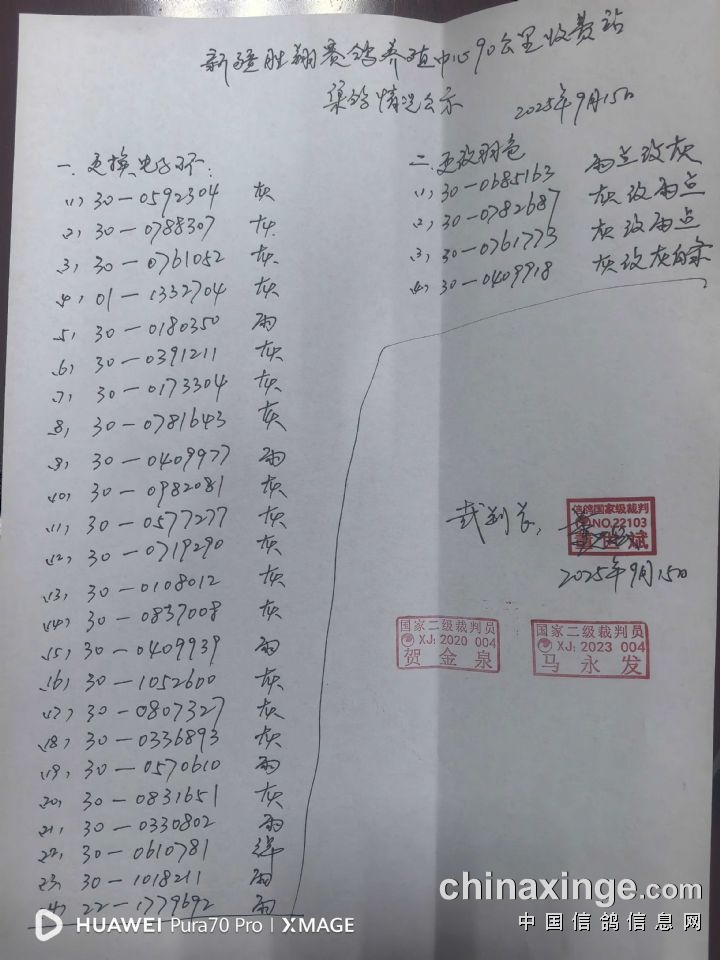 新疆胜翔赛鸽养殖中心90公里收费站
集鸽情况公示 2025年9月15日
一、更换电子环:
(1) 30-0592304 灰
(2) 30-0788307 灰
(3) 30-0761052 灰
(4) 01-1332704 灰
(5) 30-0180350 雨
(6) 30-0391211 灰
(7) 30-0173304 灰
(8) 30-0781643 灰
(9) 30-0409977 雨
(10) 30-0982081 灰
(11) 30-0577277 灰
(12) 30-0719290 灰
(13) 30-0108012 灰
(14) 30-0837008 灰
(15) 30-0409939 雨
(16) 30-1052600 灰
(17) 30-0807327 灰
(18) 30-0336893 灰
(19) 30-0570610 雨
20) 30-0831651 灰
21) 30-0330802 雨
22) 30-0610781 绛
23) 30-1018211 雨
24) 22-1779692 雨
二、更改羽色
(1) 30-0685163 雨点改灰
(2) 30-0782687 灰改雨点
(3) 30-0761773 灰改雨点
(4) 30-0409918 灰改灰白条
裁判长:
信鸽国家级裁判
NO.22103
斌
2025年9月15日
国家二级裁判员
XJ: 2020 004
贺金泉
国家二级裁判员
XJ: 2023 004
马永发
chinaxinge.com
中国信鸽信息网
HUAWEI Pura70 Pro | XMAGE